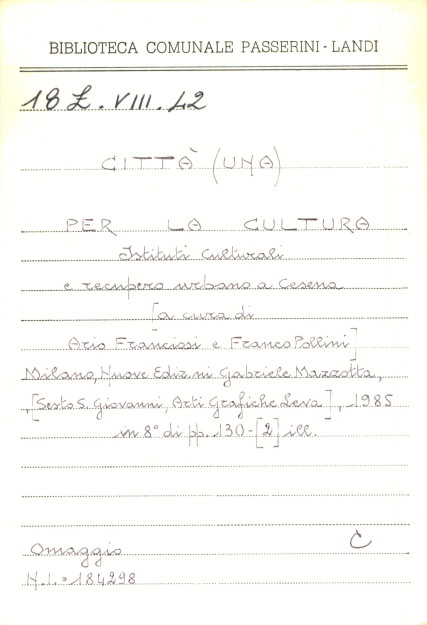 BIBLIOTECA COMUNALE PASSERINI - LANDI
18 L. VIII. 42
CITTÀ (UNA)
PER LA CULTURA
Istituti Culturali
e recupero urbano a Cesena
[a cura di
Ario Franciosi e Franco Pollini]
Milano, Nuove Ediz.ni Gabriele Mazzotta,
, [Sesto S. Giovanni, Arti Grafiche Leva], 1985
in 8° di pp. 130-[2] ill.
C
Omaggio
N.I. = 184298